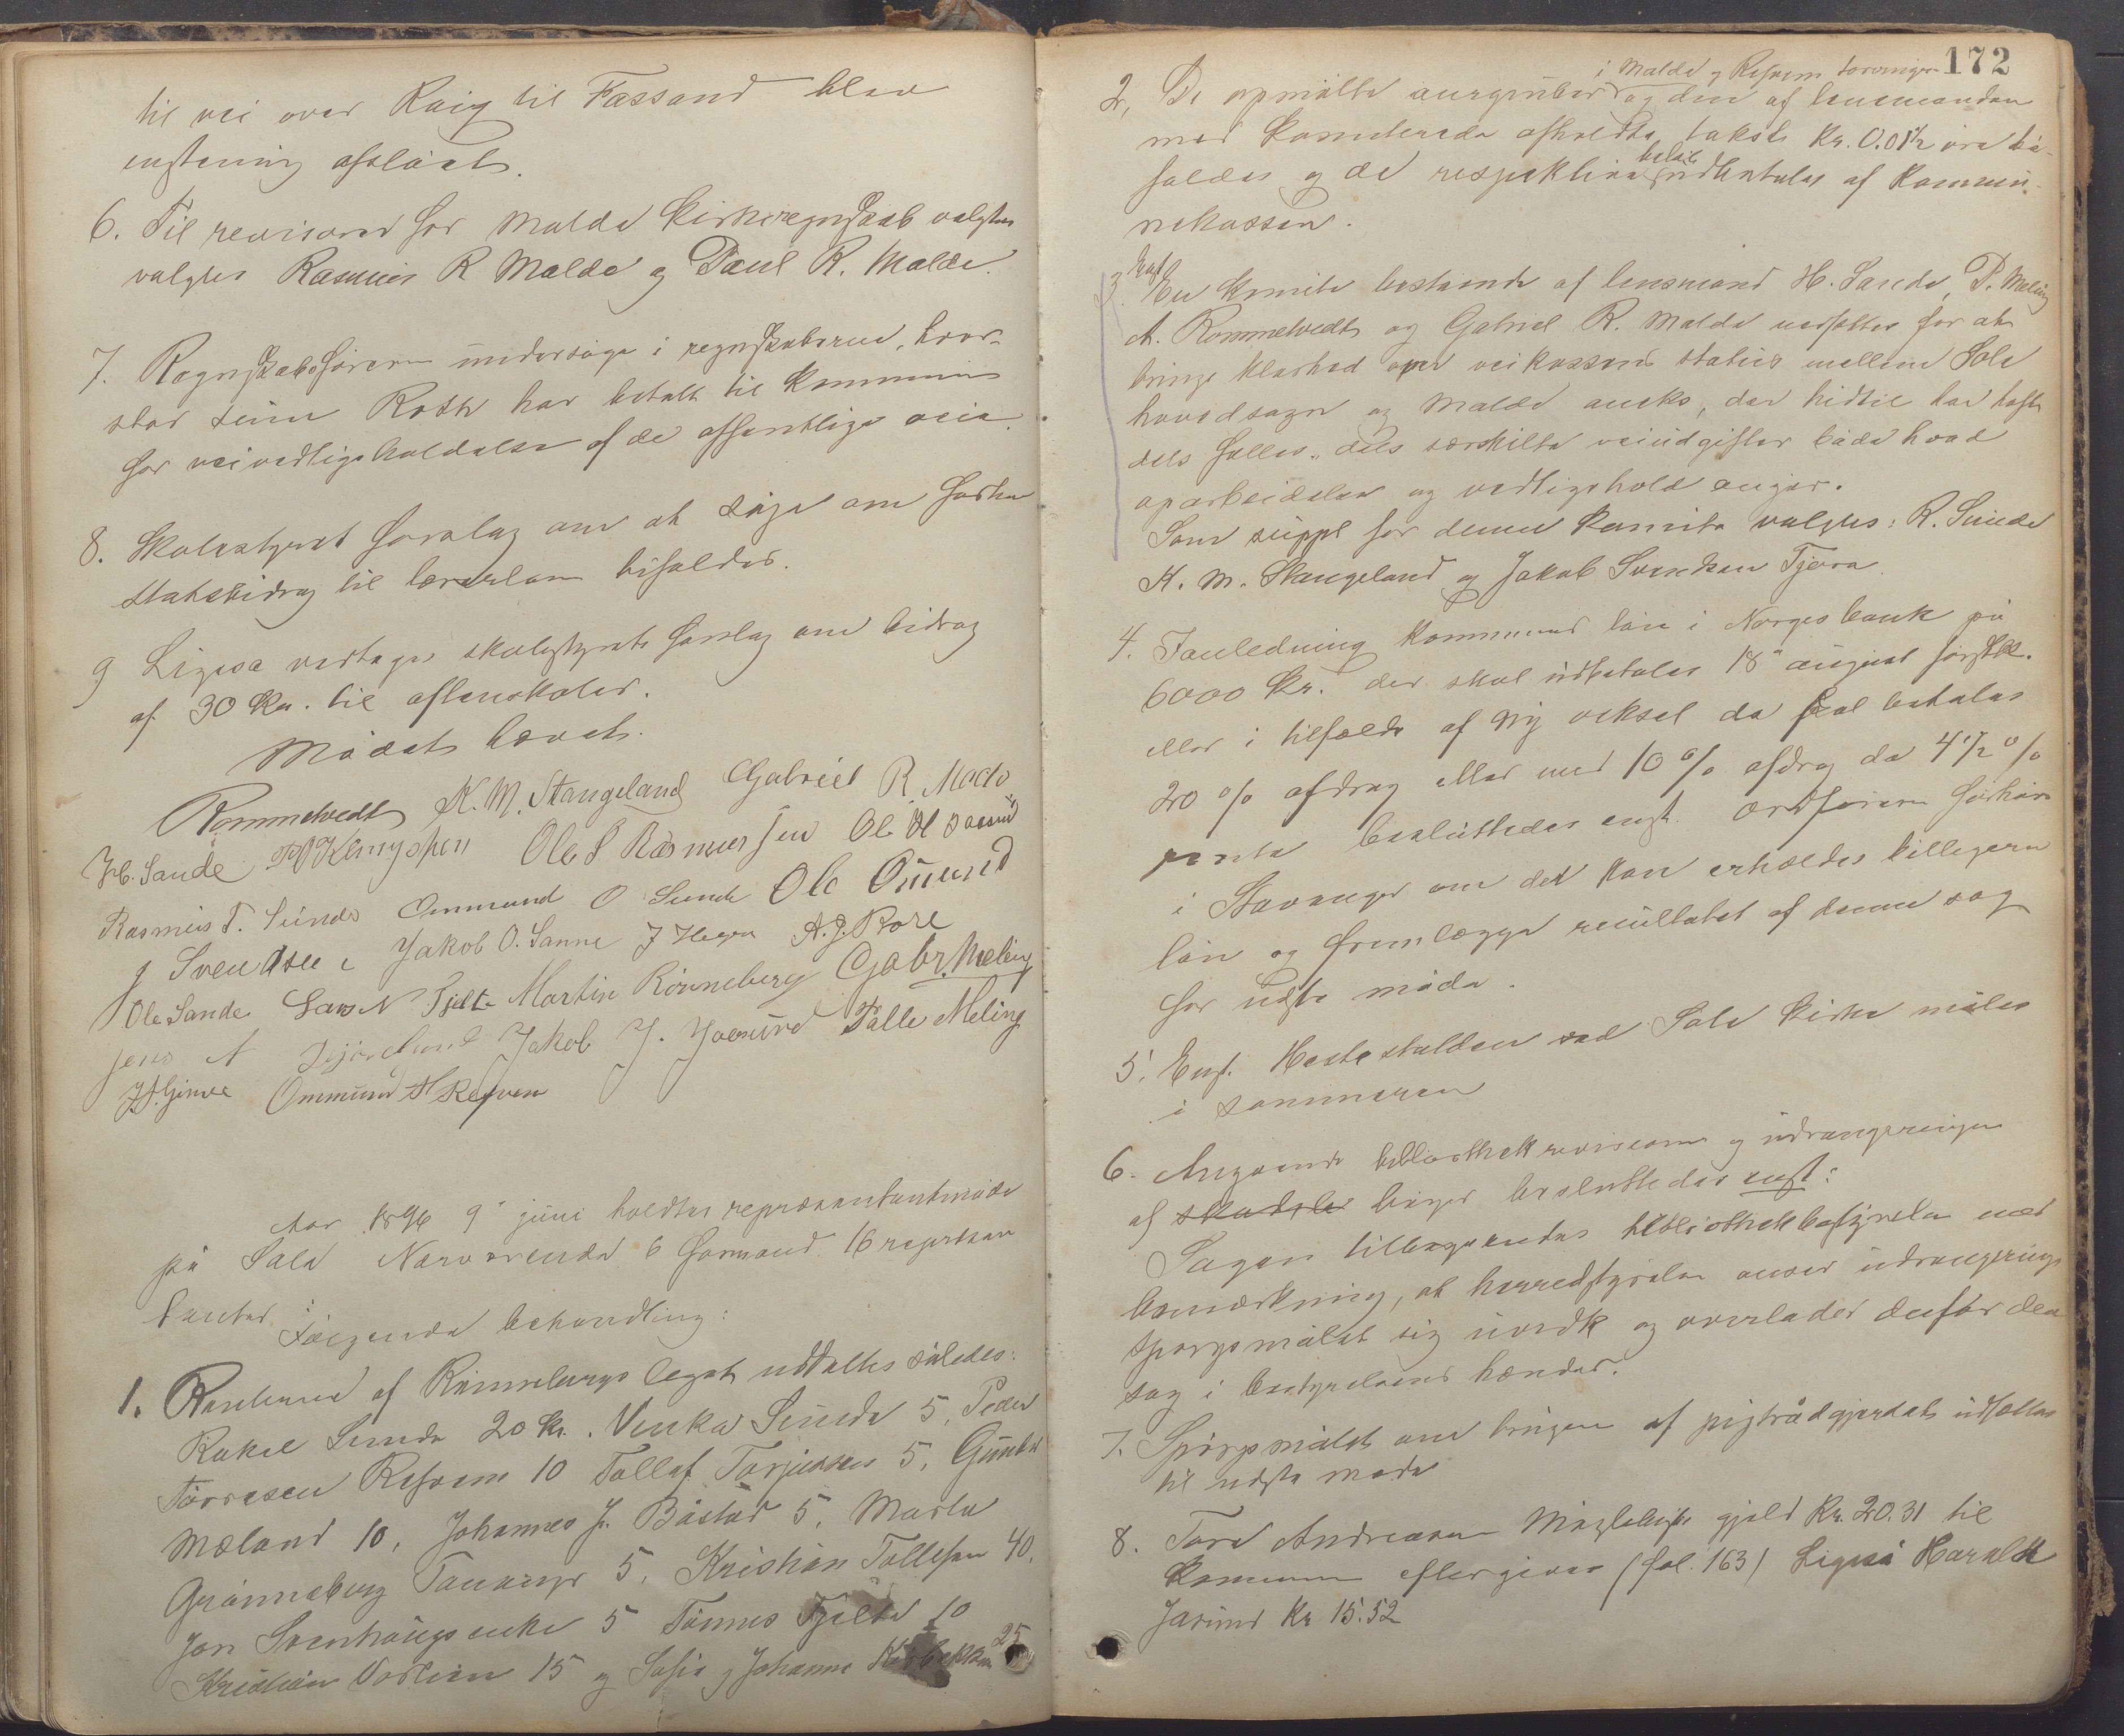 til vei over Ræg til Tassand blev
enstemig afslået.
6. Til revisorer for Malde Kirkeregnskab valgtes
valgtes Rasmus R Malde og Paul R. Malde.
7. Regnskabsføreren undersøge i regnskaberne, hvor-
stor sum Roth har betalt til Kommunen
for veivedligeholdelse af de offentlige veie.
8. Skolestyret forslag om at søge om
statsbidrag til lærerløn bifaldes.
9 Ligesa vedtages skolestyrets forslag om bidrag
af 30 Kr. til aftenskoler.
Mødet hævet.
Rommetvedt K. M. Stangeland Gabriel R.
H. Sande Ole S Rasmussen Ole
Rasmus T. Sunde Ommund O Sunde Ole Omund
J Svendsen Jakob O. Sanne J A. J. Røre
Ole Sande Lars N Tjelta Martin Rønneberg Gabr. Meling
Jens A Jakob J. Joasund Tølle Meling
Ommund H Refsnes
Aar 1896 9 juni holdtes repræsentantmøde
på Sola Nærværende 6 formænd 16 repræsen
tanter. Følgende behandling:
1. Renterne af Rønnebergs legat uddeltes således:
Rakel Sunde 20 Kr. Venka Sunde 5, Peder
Tørresen Refsnes 10 Tollef Torjussen 5,
Mæland 10, Johannes J. Båstad 5, Marta
Grønneberg Tananger 5, Kristian Tollefsen 40,
Jon Svenhaugs enke 5 Tønnes Tjelta 10
Kristian 15 og Sofia og Johanne 25
172
i Malde og Refsnes torvenger
2, De opmålte aurgruber og den af lensmanden
med Kamerade afholdte takst Kr. 0.01½ øre bi-
faldes og de respektive beløb udbetales af Kommu-
nekassen.
3. Enst. En Komite bestående af lensmand H. Sande, P. Meling
A. Rommetvedt og Gabriel R. Malde nedsattes for at
bringe klarhed over veikassens status mellem Sole
hovedsogn og Malde anneks, der hidtil har haft
dels fælles, dels særskilte veiudgifter både hvad
oparbeidelse og vedligehold angår.
Som suppl for denne Komite valgtes: R. Sunde
K. M. Stangeland og Jakob Svendsen Tjøra.
4. I anledning Kommunens lån i Norges bank på
6000 Kr. der skal udbetales 18 august førstk.
eller i tilfælde af ny veksel da skal betales
20 % afdrag eller med 10 % afdrag da 4½ %
rente besluttedes enst. ordføreren forhøre
i Stavanger om det kan erholdes billigere
lån og fremlægge resultatet af denne sag
for næste møde.
5. Enst. Hestestalden ved Sole Kirke måles
i sommeren
6. Angående bibliothekrevisionen og udrangeringen
af bøger besluttedes enst:
Sagen tilbagesendes bibliothekbestyrelsen med
bemærkning, at herredstyrelsen anser udrangerings
spørgsmålet sig uvedk og overlader derfor den
sag i bestyrelsens hænder.
7. Spørgsmålet om brugen af pigtrådgjerdet udsættes
til næste møde
8. Tore Andreasen gjeld Kr. 20.31 til
Kommunen eftergives (fol. 163) Ligeså Harald
Jåsund Kr 15.52